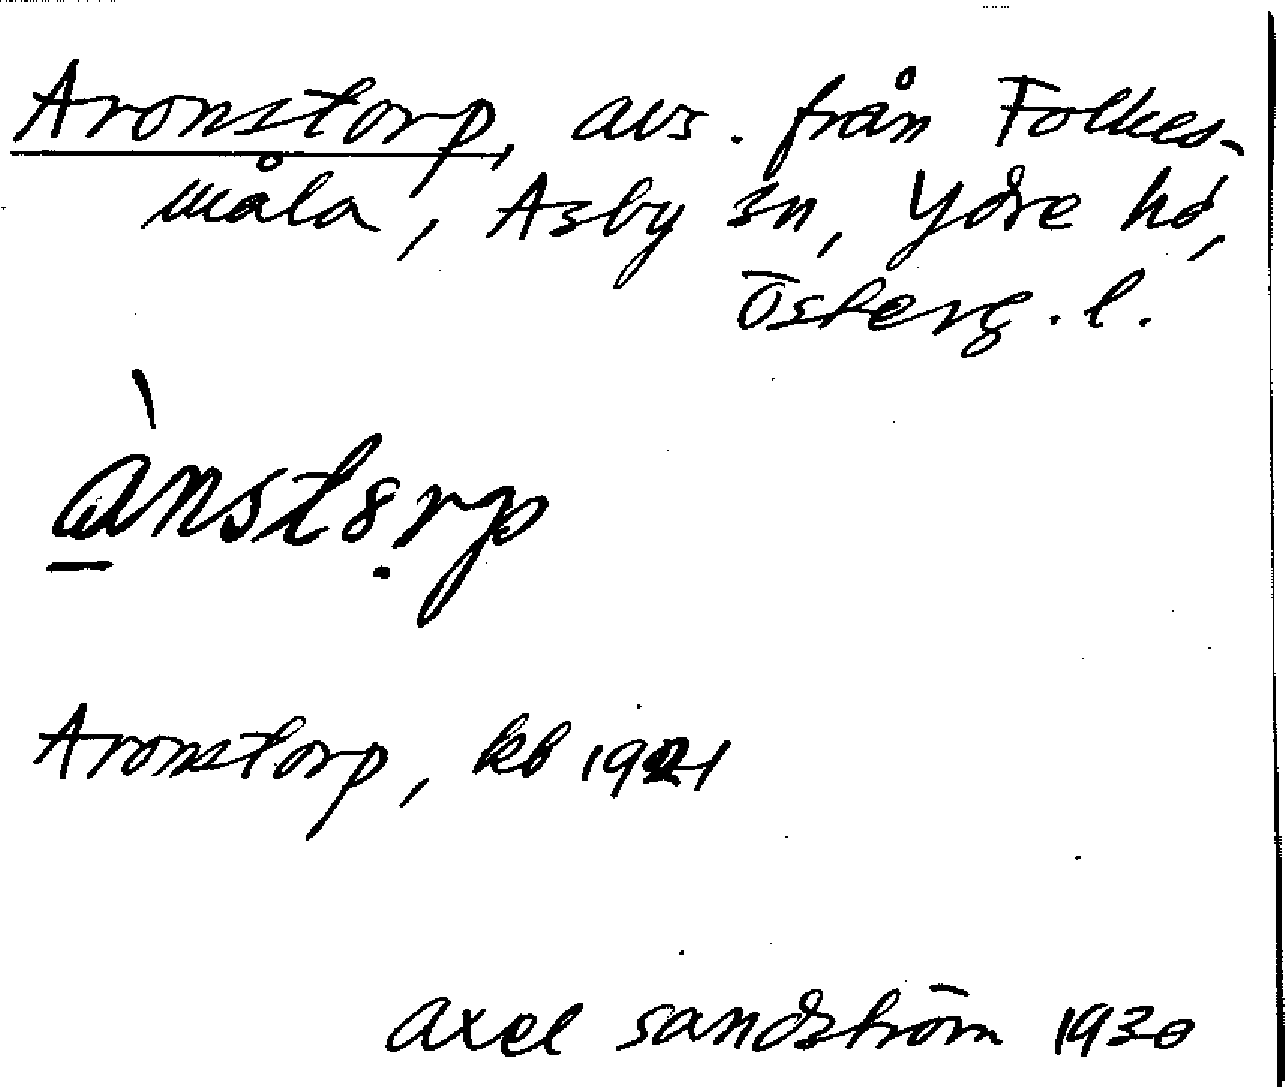 Aronstorp, avs. från Folkes-
måla, Asby sn, Ydre hd,
Österg. l.
ànstȣrp
Aronstorp, kb 1921
Axel Sandström 1930